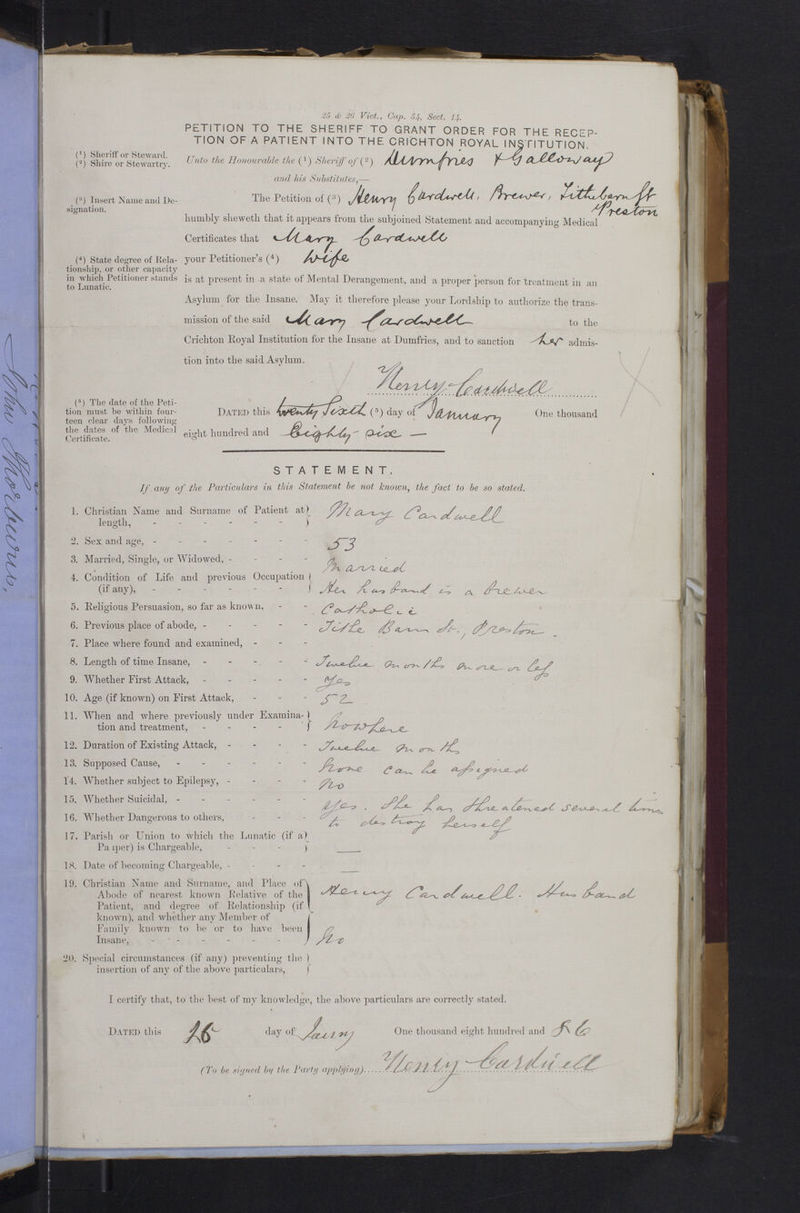 25 & 26 Vict., Cap. 54, Sect. 14.
PETITION TO THE SHERIFF TO GRANT ORDER FOR THE RECEP-
TION OF A PATIENT INTO THE CRICHTON ROYAL INSTITUTION.
(¹) Sheriff or Steward.
(²) Shire or Stewartry.
Unto the Honourable the (¹) Sheriff of (²) Dumfries & Galloway
and his Substitutes,—
(³) Insert Name and De-
signation.
The Petition of (³) Henry Cardwell, Brewer, Tithebarn St
Preston
humbly sheweth that it appears from the subjoined Statement and accompanying Medical
Certificates that Mary Cardwell
(⁴) State degree of Rela-
tionship, or other capacity
in which Petitioner stands
to Lunatic.
your Petitioner's (⁴) Wife
is at present in a state of Mental Derangement, and a proper person for treatment in an
Asylum for the Insane. May it therefore please your Lordship to authorize the trans-
mission of the said Mary Cardwell to the
Crichton Royal Institution for the Insane at Dumfries, and to sanction her admis-
tion into the said Asylum.
Henry Cardwell
(⁵) The date of the Peti-
tion must be within four-
teen clear days following
the dates of the Medical
Certificate.
DATED this twenty Sixth (⁵) day of January One thousand
eight hundred and Eighty-six —
STATEMENT.
If any of the Particulars in this Statement be not known, the fact to be so stated.
1. Christian Name and Surname of Patient at length, - - - - - - Mary Cardwell
2. Sex and age, - - - - - - - 53
3. Married, Single, or Widowed, - - - - Married
4. Condition of Life and previous Occupation (if any), - - - - - - Her husband is a brewer
5. Religious Persuasion, so far as known, - - Catholic
6. Previous place of abode, - - - - - Tithe Barn St., Preston.
7. Place where found and examined, - - -
8. Length of time Insane, - - - - - Twelve months more or less
9. Whether First Attack, - - - - - Yes
10. Age (if known) on First Attack, - - - 52
11. When and where previously under Examina-
tion and treatment, - - - - - Nowhere
12. Duration of Existing Attack, - - - - Twelve months
13. Supposed Cause, - - - - - - None can be assigned
14. Whether subject to Epilepsy, - - - - No
15. Whether Suicidal, - - - - - - Yes. She has threatened several times
16. Whether Dangerous to others, - - - to destroy herself
17. Parish or Union to which the Lunatic (if a
Pauper) is Chargeable, - - - - —
18. Date of becoming Chargeable, - - - - —
19. Christian Name and Surname, and Place of
Abode of nearest known Relative of the
Patient, and degree of Relationship (if
known), and whether any Member of
Family known to be or to have been
Insane, - - - - - - -
Henry Cardwell. Husband
No
20. Special circumstances (if any) preventing the
insertion of any of the above particulars,
I certify that, to the best of my knowledge, the above particulars are correctly stated.
DATED this 26 day of One thousand eight hundred and 86
(To be signed by the Party applying) Henry Cardwell
John Thorburn